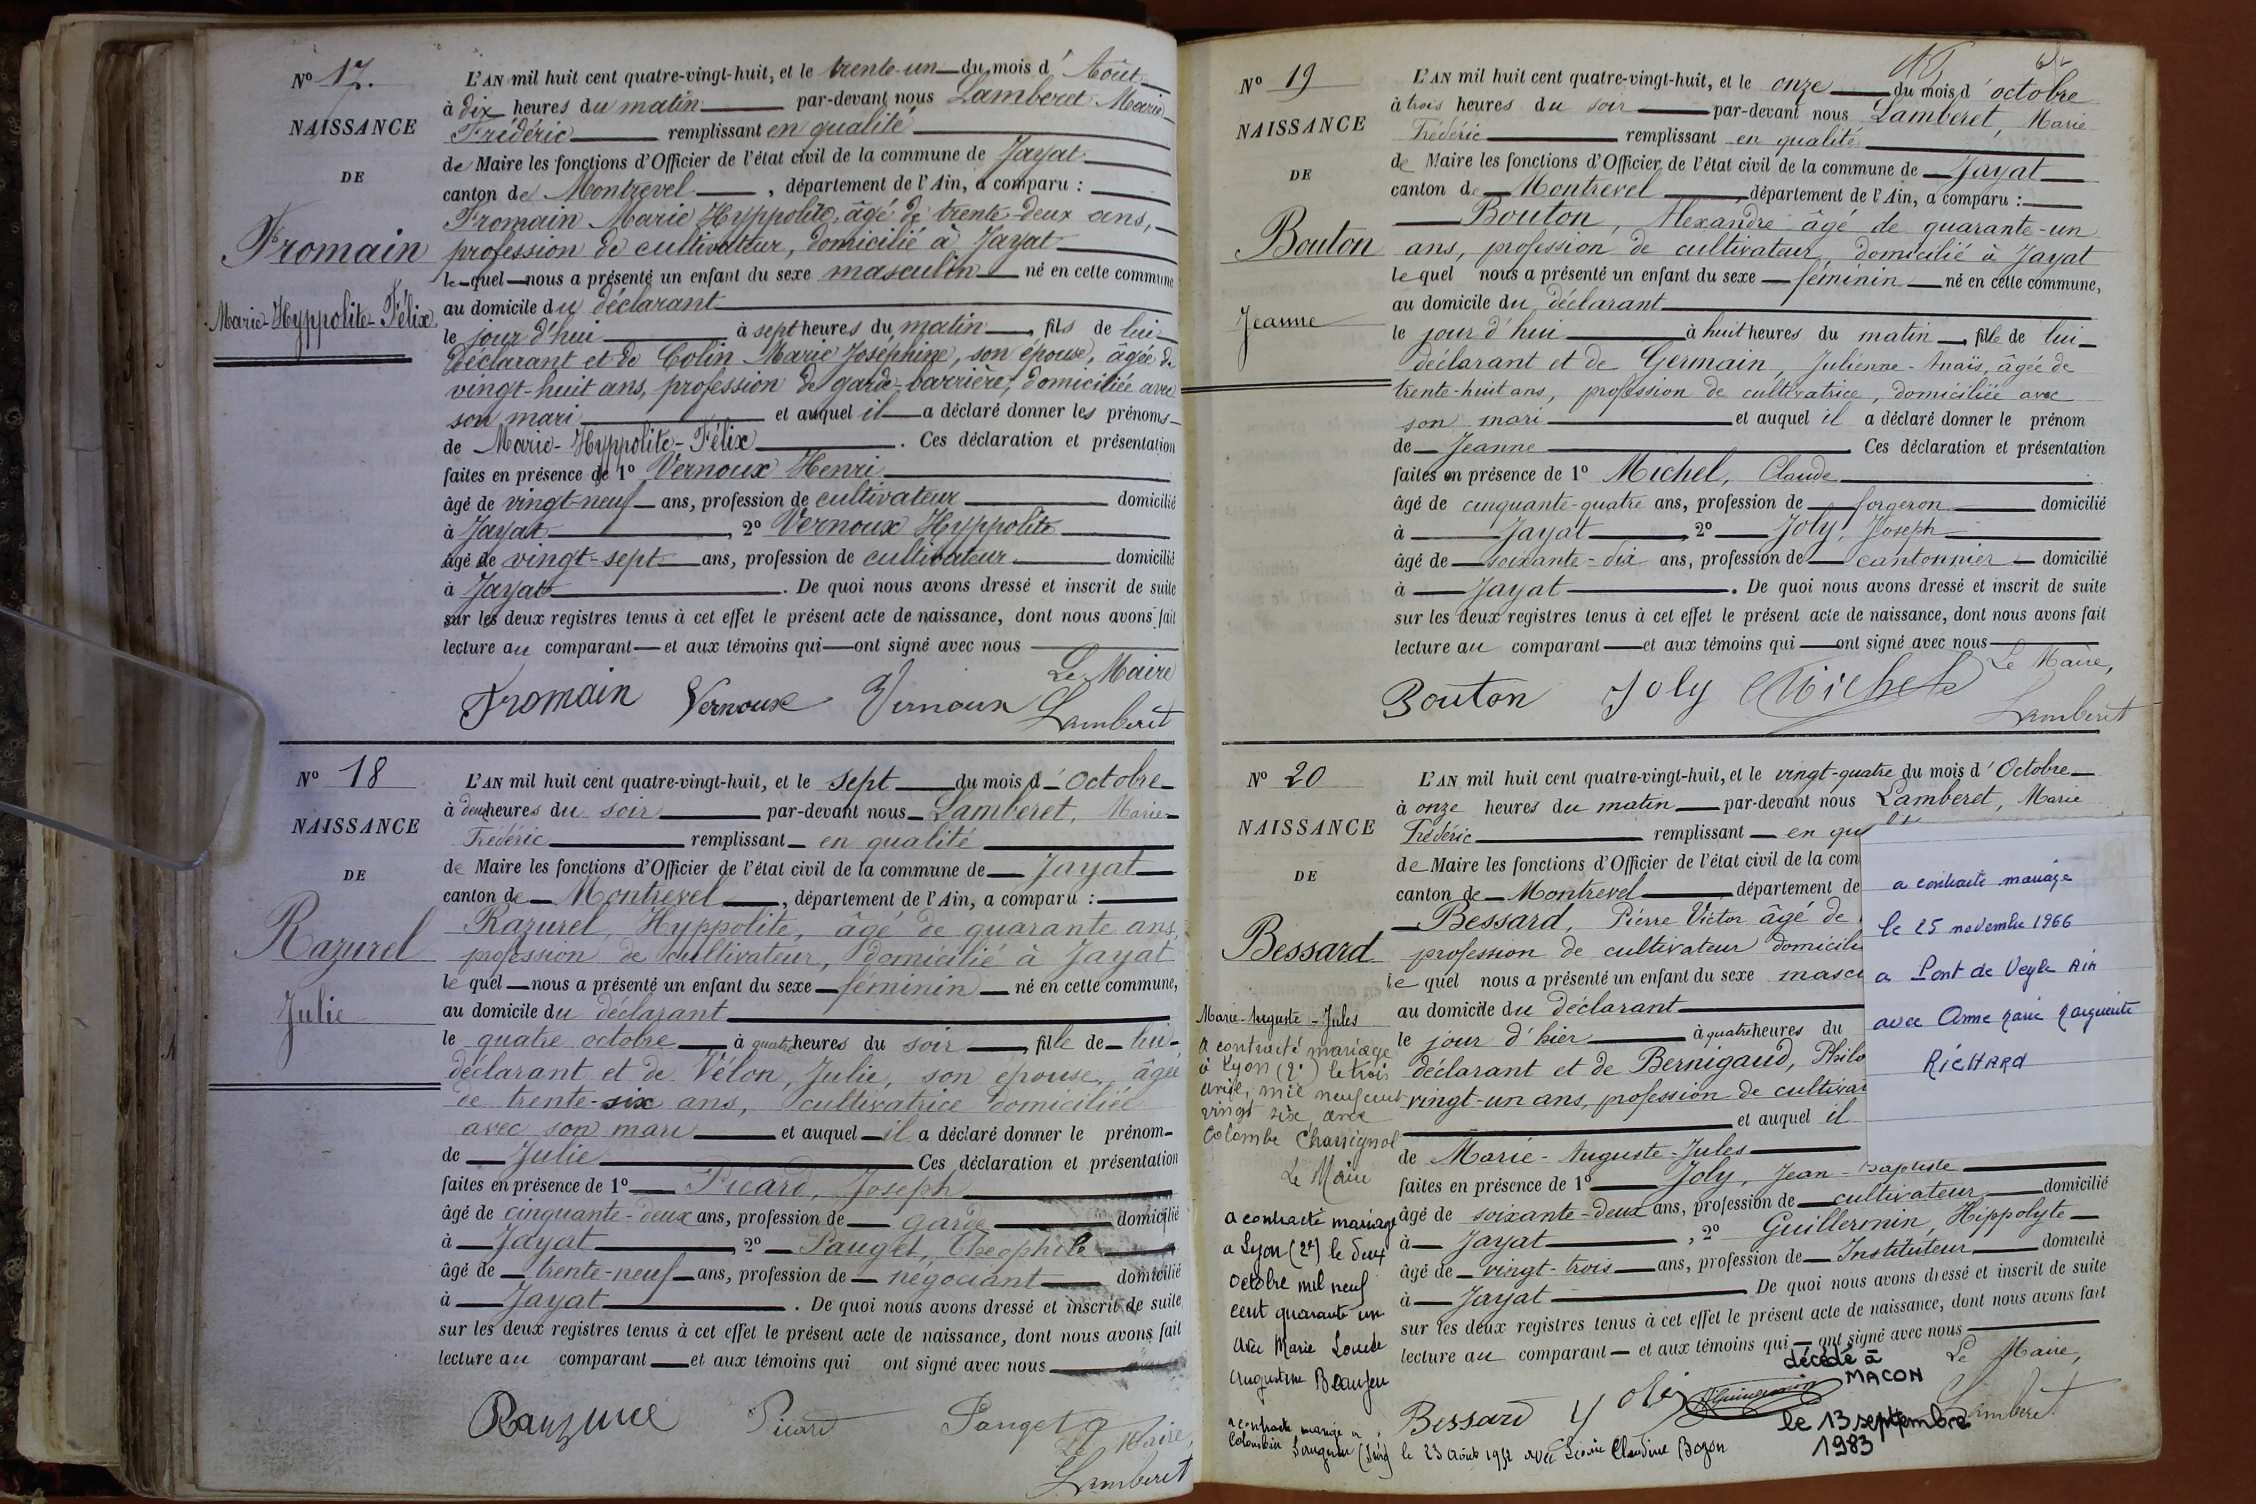 N° 17.
NAISSANCE
DE
Fromain
Marie-Hyppolite-Félix
L'AN mil huit cent quatre-vingt-huit, et le trente-un du mois d' Août
à dix heures du matin par-devant nous Lamberet Marie
Frédéric remplissant en qualité
de Maire les fonctions d'Officier de l'état civil de la commune de Jayat
canton de Montrevel, département de l'Ain, a comparu :
Fromain Marie Hyppolite, âgé de trente-deux ans,
profession de cultivateur, domicilié à Jayat
le-quel nous a présenté un enfant du sexe masculin né en cette commune
au domicile du déclarant
le jour d'hui à sept heures du matin, fils de lui-
déclarant et de Colin Marie Joséphine, son épouse, âgée de
vingt-huit ans, profession de garde-barrière, domiciliée avec
son mari et auquel il a déclaré donner les prénoms
de Marie-Hyppolite-Félix. Ces déclaration et présentation
faites en présence de 1° Vernoux Henri
âgé de vingt-neuf ans, profession de cultivateur domicilié
à Jayat, 2° Vernoux Hyppolite
âgé de vingt-sept ans, profession de cultivateur domicilié
à Jayat. De quoi nous avons dressé et inscrit de suite
sur les deux registres tenus à cet effet le présent acte de naissance, dont nous avons fait
lecture au comparant et aux témoins qui ont signé avec nous
Le Maire
Fromain Vernoux Vernoux Lamberet
N° 18
NAISSANCE
DE
Razurel
Julie
L'AN mil huit cent quatre-vingt-huit, et le sept du mois d' Octobre
à deux heures du soir par-devant nous Lamberet, Marie
Frédéric remplissant en qualité
de Maire les fonctions d'Officier de l'état civil de la commune de Jayat
canton de Montrevel, département de l'Ain, a comparu :
Razurel, Hyppolite, âgé de quarante ans,
profession de cultivateur, domicilié à Jayat
le quel nous a présenté un enfant du sexe féminin né en cette commune,
au domicile du déclarant
le quatre octobre à quatre heures du soir, fille de lui-
déclarant et de Vélon, Julie, son épouse, âgée
de trente-six ans, cultivatrice domiciliée
avec son mari et auquel il a déclaré donner le prénom
de Julie Ces déclaration et présentation
faites en présence de 1° Picard, Joseph
âgé de cinquante-deux ans, profession de garde domicilié
à Jayat, 2° Pauget, Théophile
âgé de trente-neuf ans, profession de négociant domicilié
à Jayat. De quoi nous avons dressé et inscrit de suite
sur les deux registres tenus à cet effet le présent acte de naissance, dont nous avons fait
lecture au comparant et aux témoins qui ont signé avec nous
Picard Pauget
Le Maire,
Lamberet
N° 19
NAISSANCE
DE
Bouton
Jeanne
L'AN mil huit cent quatre-vingt-huit, et le onze du mois d' octobre
à trois heures du soir par-devant nous Lamberet, Marie
Frédéric remplissant en qualité
de Maire les fonctions d'Officier de l'état civil de la commune de Jayat
canton de Montrevel, département de l'Ain, a comparu :
Bouton, Alexandre âgé de quarante-un
ans, profession de cultivateur, domicilié à Jayat
le quel nous a présenté un enfant du sexe féminin né en cette commune,
au domicile du déclarant
le jour d'hui à huit heures du matin, fille de lui-
déclarant et de Germain, Julienne-Anaïs, âgée de
trente-huit ans, profession de cultivatrice, domiciliée avec
son mari et auquel il a déclaré donner le prénom
de Jeanne Ces déclaration et présentation
faites en présence de 1° Michel, Claude
âgé de cinquante-quatre ans, profession de forgeron domicilié
à Jayat, 2° Joly, Joseph
âgé de soixante-dix ans, profession de cantonnier domicilié
à Jayat. De quoi nous avons dressé et inscrit de suite
sur les deux registres tenus à cet effet le présent acte de naissance, dont nous avons fait
lecture au comparant et aux témoins qui ont signé avec nous
Le Maire,
Bouton Joly Michel Lamberet
N° 20
NAISSANCE
DE
Bessard
Marie-Auguste-Jules
a contracté mariage
à Lyon (2e) le trois
avril, mil neuf cent
vingt six, avec
Colombe Charrignol
Le Maire
a contracté mariage
a Lyon (2e) le deux
octobre mil neuf
cent quarante un
avec Marie Louise
Augustine Beaujeu
a contracté mariage a
Colombier Saugnieu (Isère) le 23 Août 1952 avec Claudine Bozon
L'AN mil huit cent quatre-vingt-huit, et le vingt-quatre du mois d' Octobre
à onze heures du matin par-devant nous Lamberet, Marie
Frédéric remplissant en qu
de Maire les fonctions d'Officier de l'état civil de la com
canton de Montrevel département de
Bessard, Pierre Victor âgé de
profession de cultivateur domicili
le quel nous a présenté un enfant du sexe mascu
au domicile du déclarant
le jour d'hier à quatre heures du
déclarant et de Bernigaud, Philo
vingt-un ans, profession de cultivat
et auquel il
de Marie-Auguste-Jules
faites en présence de 1° Joly, Jean-Baptiste
âgé de soixante-deux ans, profession de cultivateur domicilié
à Jayat, 2° Guillermin, Hippolyte
âgé de vingt-trois ans, profession de Instituteur domicilié
à Jayat De quoi nous avons dressé et inscrit de suite
sur les deux registres tenus à cet effet le présent acte de naissance, dont nous avons fait
lecture au comparant et aux témoins qui ont signé avec nous
Le Maire,
Bessard Joly Guillermin Lamberet
décédé à
MACON
le 13 septembre
1983
a contracté mariage
le 25 novembre 1966
a Pont de Veyle Ain
avec Anne Marie Marguerite
RICHARD